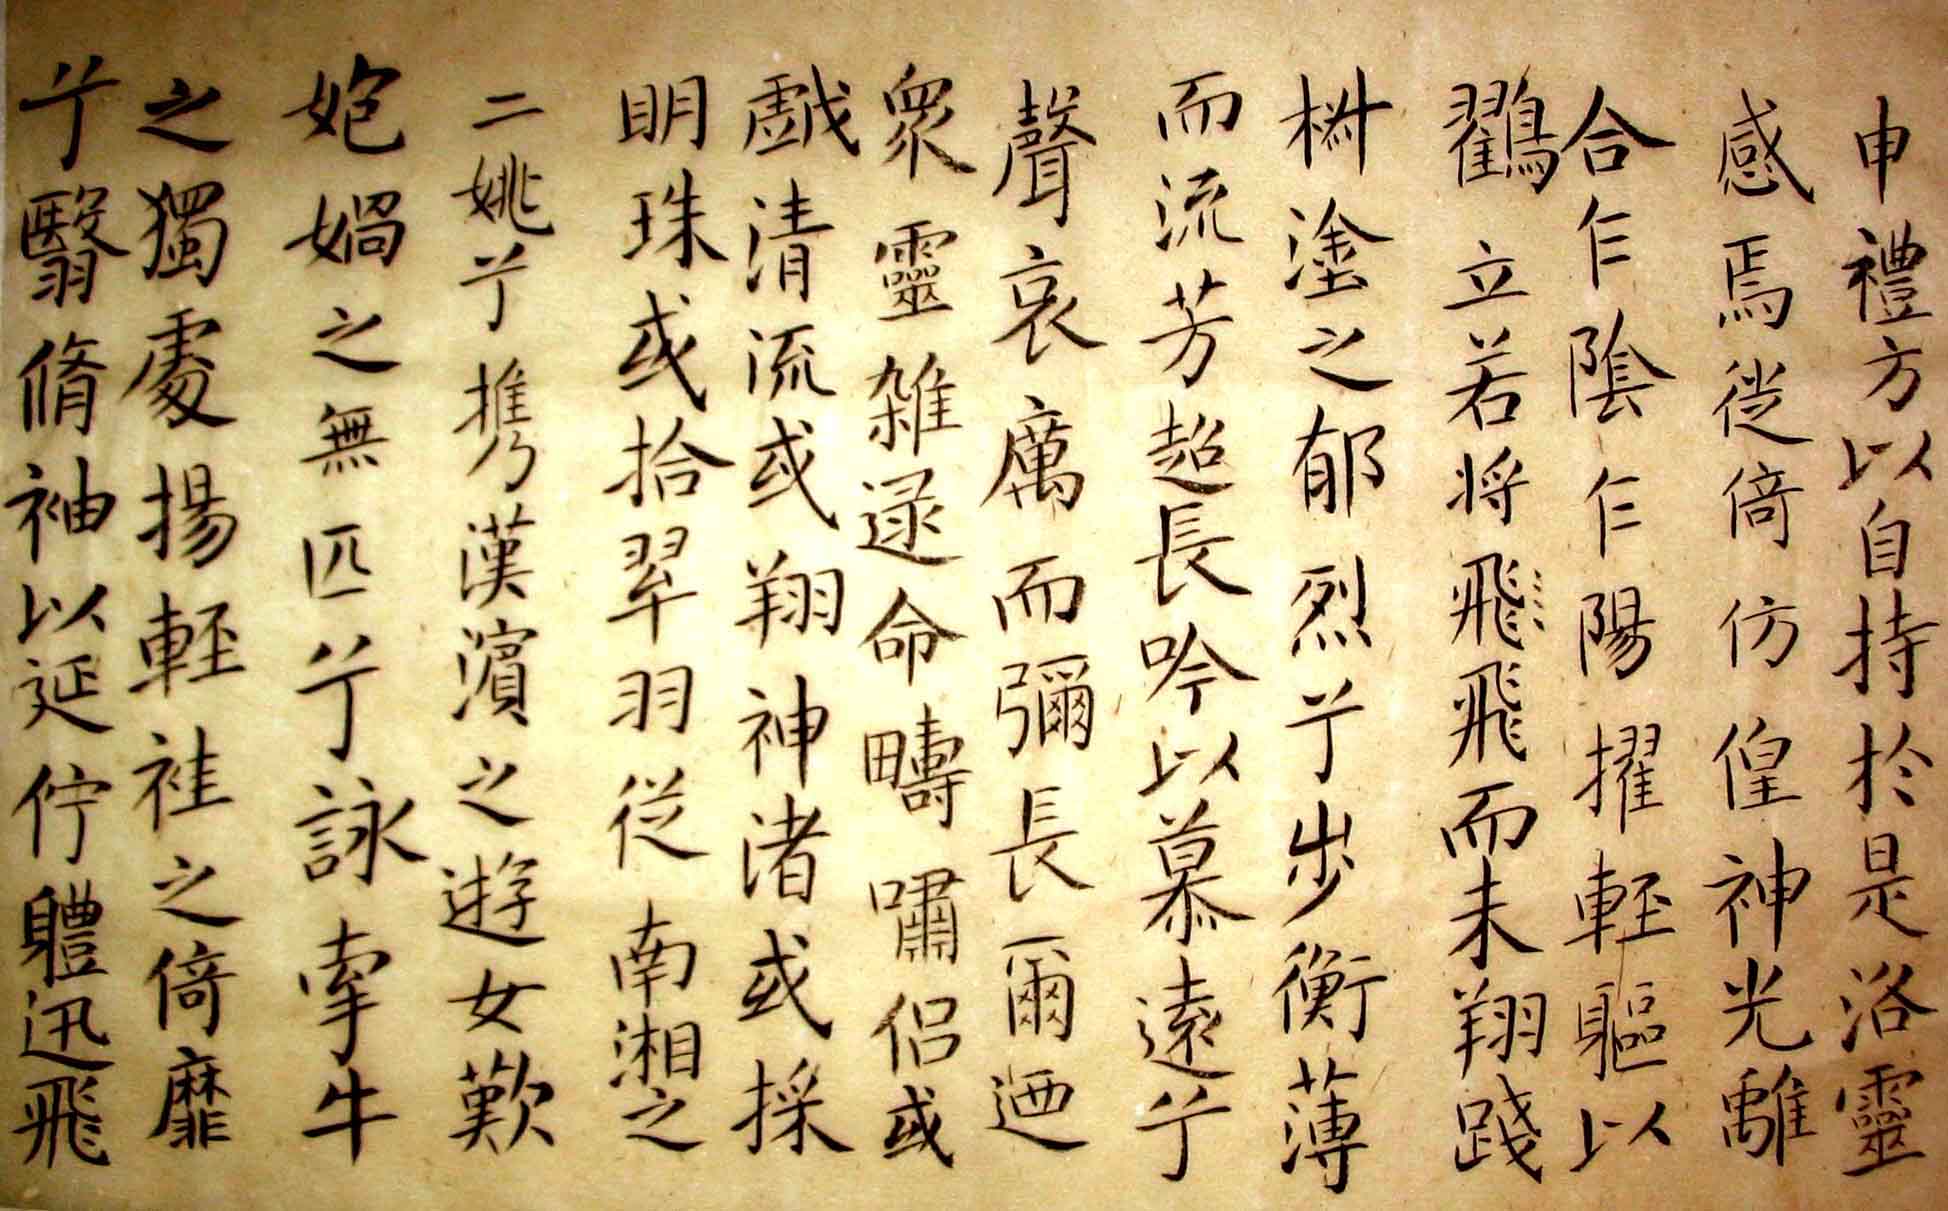 申禮方以自持於是洛靈
感焉從倚仿偟神光離
合乍陰乍陽擢輊軀以
鸐立若将飛飛而未翔踐
樹塗之郁烈兮步衡薄
而流芳超長吟以慕遠兮
聲哀厲而彌長爾迺
衆靈雜逯命疇嘯侣或
戯清流或翔神渚或採
明珠或拾翠羽從南湘之
二姚兮攜漢濱之遊女歎
𡛕媧之無匹兮詠牽牛
之獨處揚輊袿之倚靡
兮翳脩袖以延佇體迅飛